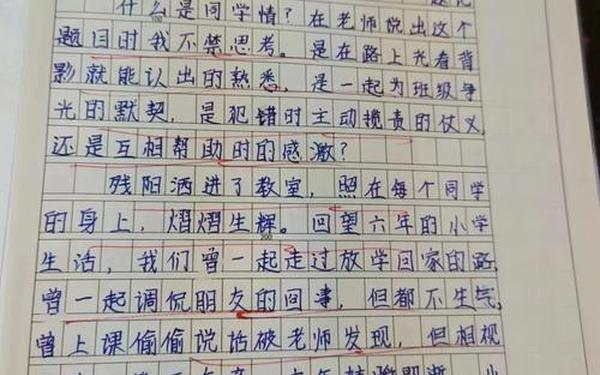 什么是同学情？在老师说出这个
题目时我不禁思考。是在路上光看背
影就能认出的熟悉，是一起为班级争
光的默契，是犯错时主动揽责的仗义，
还是互相帮助时的感激？
残阳洒进了教室，照在每个同学
的身上，熠熠生辉。回望六年的小学
200
生活，我们曾一起走过放学回家的路，
曾一起调侃朋友的囧事，但都不生气，
曾上课偷偷说话被老师发现，但相视